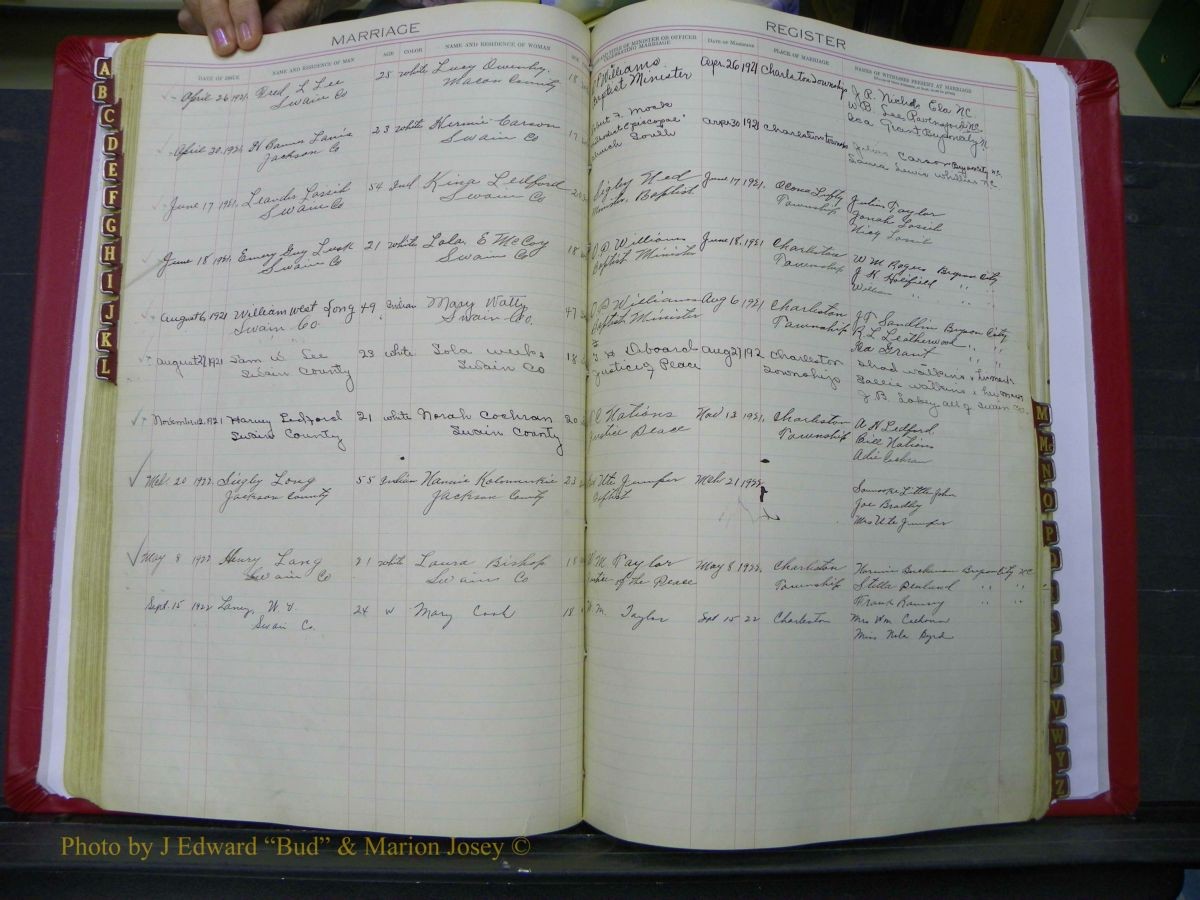 MARRIAGE
REGISTER
DATE OF ISSUE NAME AND RESIDENCE OF MAN AGE COLOR NAME AND RESIDENCE OF WOMAN
STYLE OF MINISTER OR OFFICER CELEBRATING MARRIAGE DATE OF MARRIAGE PLACE OF MARRIAGE NAMES OF WITNESSES PRESENT AT MARRIAGE
April 26 1921 Fred L Lee 25 white Lucy Ownbey 18
Swain Co Macon County
Williams Apr. 26 1921 Charleston Township J. R. Nichols Ela NC.
Baptist Minister W B Lee NC.
Grant
April 30 1921 H 23 white Hermie Carson 17
Jackson Co Swain Co
Methodist Episcopal April 30 1921 Charleston Carson
Church South Lewis NC
June 17 1921. Leander Lossih 54 Ind King Ledford
Swain Co Swain Co
Ned June 17 1921. Ocona Lufty Julius Taylor
Baptist Township Jonah Lossih
Lossih
June 18 1921. Emery Guy Luck 21 white Lola E McCoy 18
Swain Co Swain Co
Williams June 18, 1921 Charleston W M Rogers Bryson City
Baptist Minister Township J H Holifield " "
William " "
August 6, 1921 William West Long 49 Indian Mary Watty 47
Swain Co. Swain Co.
Williams Aug 6, 1921 Charleston J T Sandlin Bryson City
Baptist Minister Township R L Leatherwood " "
Ida Grant " "
August 27 1921 Sam W Lee 23 white Lola weeks 18
Swain County Swain Co
Aug 27 192 Charleston Shad Watkins his mark
Justice of Peace Township Sallie Watkins her mark
J. B. all of Swain Co.
November 12, 1921 Harvey Ledford 21 white Norah Cochran 20
Swain County Swain County
C Nations Nov 13 1921. Charleston A N Ledford
Justice Peace Township Bill Nations
Adie Cochran
Mch 20 1922. Sigly Long 55 Indian Nannie Kolonuskie 23
Jackson County Jackson County
Ute Jumper Mch 21 1922 Sawnooke Little John
Baptist Joe Bradley
Mrs Ute Jumper
May 8 1922 Henry Lang 21 white Laura Bishop 18
Swain Co Swain Co
W M Taylor May 8 1922. Charleston Buchanan Bryson City NC
Justice of the Peace Township Stella Penland " "
Frank Ramsey " "
Sept. 15 1922 Laney, W. 24 W Mary Cook 18
Swain Co.
W M. Taylor Sept 15 22 Charleston Mrs Wm Calhoun
Miss Byrd
A
B
C
D
E
F
G
H
I
J
K
L
M
Mc
N
O
P
T
U
V
W
Y
Z
Photo by J Edward “Bud” & Marion Josey ©